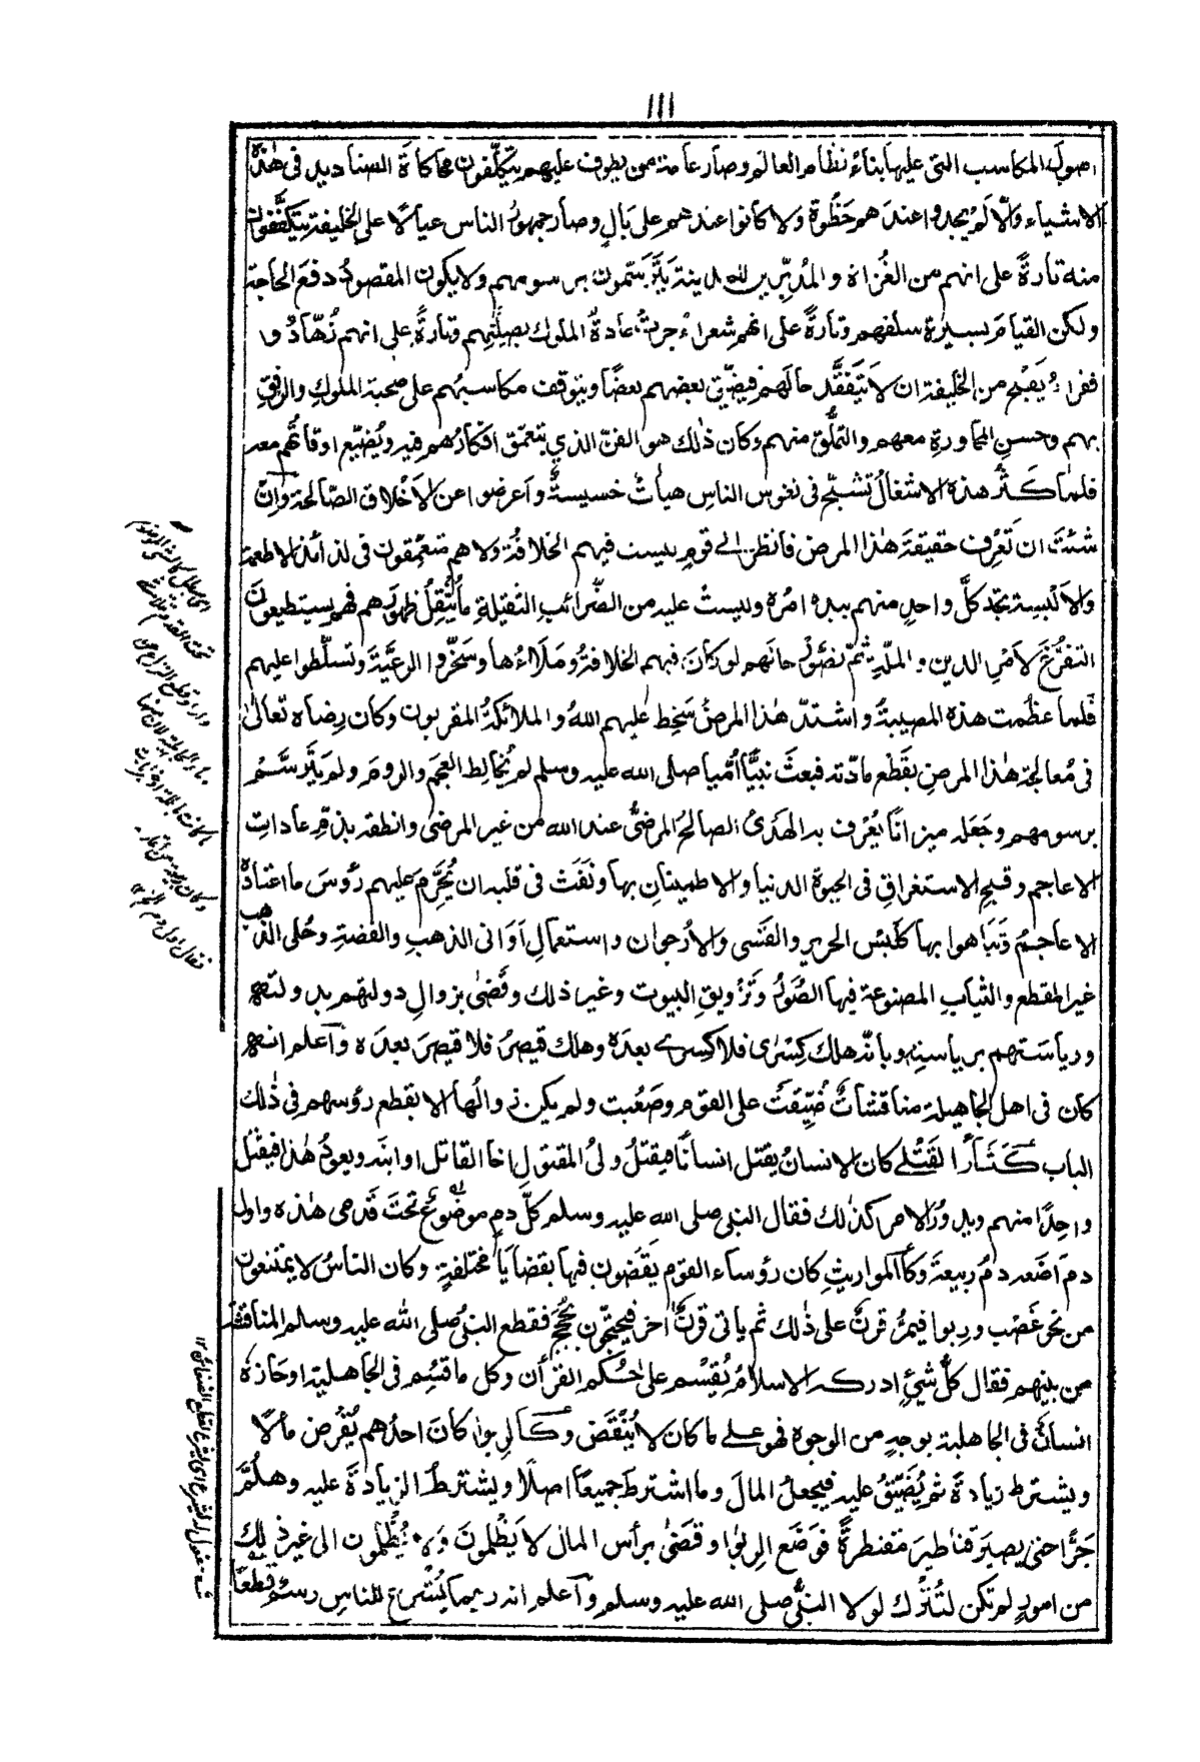 ١١١
اصول المكاسب التى عليها بناء نظام العالم وصار عامة من يطوف عليهم يتكلّفون محاكاة الصناديد فى هٰذه
الاشياء وَالّا لَمْ يجدوا عندَهم حَظْوة ولا كانوا عندهم على بَالٍ وصار جمهورُ الناس عيالًا على الخليفة يتكفّفون
منه تارةً على انهم من الغُزاة والمُدبِّرين للمدينة يترسّمون برسومهم ولا يكون المقصودُ دفعَ الحاجة
ولكن القيامَ بسيرة سلفهم وتارةً على انهم شعراءُ جرت عادةُ الملوك بصِلَتِهم وتارةً على انهم زُهّادٌ و
فقراءُ يَقبُح من الخليفة ان لا يَتفقَّد حالَهم فيضيّق بعضهم بعضًا ويتوقف مكاسبُهم على صحبة الملوكِ والرفقِ
بهم وحسنِ المحاورةِ معهم والتملّق منهم وكان ذٰلك هو الفنّ الذي يتعمّق افكارُهم فيه ويُضيّع اوقاتُهم معه
فلما كثُر هذه الاشغالُ تشبّح فى نفوس الناسِ هيأتٌ خسيسةٌ واَعرضوا عن الاَخْلاق الصّالحة واِنْ
شئتَ ان تَعرِف حقيقةَ هٰذا المرض فانظر الى قومٍ ليست فيهم الخلافةُ ولا هم متعمّقون فى لذائذ الاطعمة
والاَلْبِسة تجد كلَّ واحدٍ منهم بيده امرُه وليست عليه من الضّرائبِ الثقيلةِ ما يُثقِلُ ظهورَهم فهم يستطيعون
التفرُّغَ لاَمرِ الدين والملّةِ ثمّ تصوَّرْ حالَهم لو كان فيهم الخلافةُ ومَلَأُها وسَخّروا الرعيَّةَ وتسلّطوا عليهم
فلما عظُمت هذه المصيبةُ واشتدّ هٰذا المرضُ سَخِط عليهم اللهُ والملائكةُ المقربون وكان رِضاه تعالىٰ
فى مُعالجة هٰذا المرضِ بقَطْع مادّته فبعثَ نبيًّا اُمّيا صلى الله عليه وسلم لم يُخالِط العجمَ والرومَ ولم يترسَّمْ
برسومهم وجَعَله ميزانًا يُعْرف به الهَدْىُ الصالحُ المرضىُّ عند الله من غير المرضىّ وانطقه بذمّ عاداتِ
الاعاجم وقبحِ الاستغراقِ فى الحيوة الدنيا والاطمينانِ بها ونَفَث فى قلبه ان يُحرَّمَ عليهم رؤسَ ما اعتادهٗ
الاعاجمُ وتَباهوا بها كلُبْسِ الحريرِ والقَسّى والاُرجوان واستعمالِ اَوَانى الذهبِ والفضةِ وحُلى الذهب
غير المقطع والثيابِ المصنوعة فيها الصُّوَرُ وتزويقِ البيوت وغير ذلك وقَضىٰ بزوالِ دولتهم بدولتهٖ
ورياسَتهم برياسته وبأنّه هلك كِسْرٰى فلا كسرى بعدَه وهلك قيصرُ فلا قيصرَ بعدَه وٱعلم انه
كان فى اهل الجاهيلة مناقشاتٌ ضَيّقتْ على القوم وصَعُبت ولم يكن زوالُها الا بقطع رؤسهم فى ذٰلك
الباب كَثَأرِ القَتْلى كان الانسانُ يقتل انسانًا فيقتلُ ولىُّ المقتولِ اخا القاتل او ابنَه ويعودُ هٰذا فيقتُل
واحدًا منهم ويدورُ الامر كذٰلك فقال النبى صلى الله عليه وسلم كلّ دمٍ موضوعٌ تحتَ قَدمى هٰذه واول
دم اَضَعه دمُ ربيعةَ وكالمواريثِ كان رؤساء القومِ يقضون فيها بقضايا مختلفةٍ وكان الناسُ لا يمتنعون
من نحو غَصْب وربوا فيمرُّ قرنٌ على ذٰلك ثم ياتى قرنٌ اٰخر فيحتجّون بحُججٍ فقطع النبىُّ صلى الله عليه وسلم المناقشة
من بينهم فقال كلُّ شيءٍ ادركه الاسلامُ يُقسَم على حُكم القرآن وكل ما قُسِم فى الجاهلية او حَازهٗ
انسانٌ فى الجاهلية بوجهٍ من الوجوه فهو على ما كان لا يُنْقَض وكالربوا كان احدُهم يُقرض مالًا
ويشترط زيادةً ثم يُضيّقُ عليه فيجعلُ المالَ وما اشترط جميعًا اصلًا ويشترطُ الزيادةَ عليه وهَلُمَّ
جَرًّا حتى يصيرَ قناطيرَ مقنطرةً فوَضَع الربوا وقضىٰ برأس المال لا يَظْلمونَ ولا يُظْلمون الى غير ذٰلك
من امورٍ لم تكن لتُترَك لولا النبىُّ صلى الله عليه وسلم وٱعلم انه ربما يُشرع للناسِ رسمٌ قطعًا